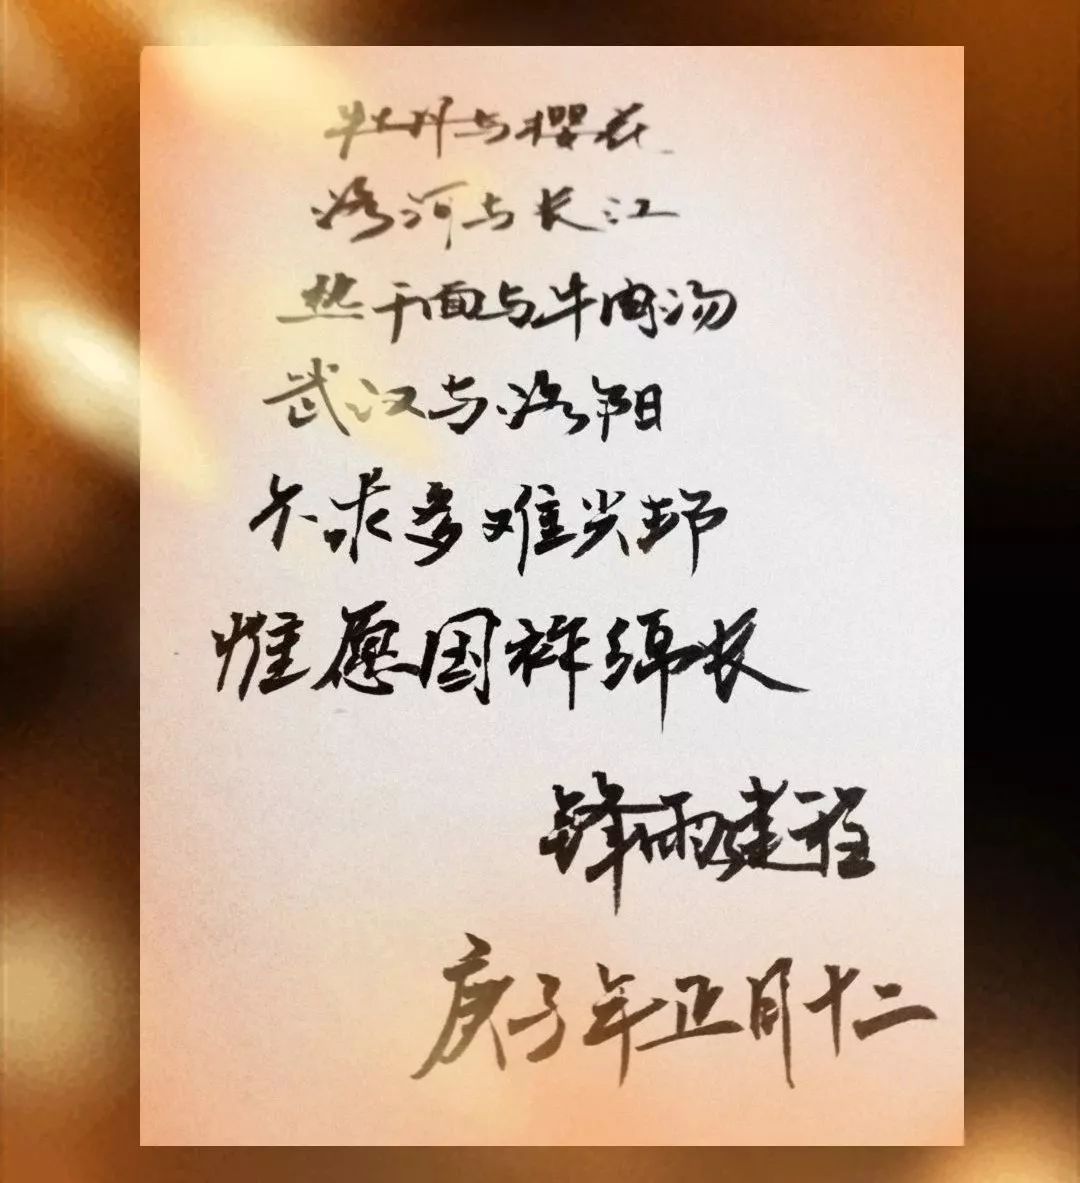 牡丹与樱花
洛河与长江
热干面与牛肉汤
武汉与洛阳
不求多难兴邦
惟愿国祚绵长
锋雨建程
庚子年正月十二